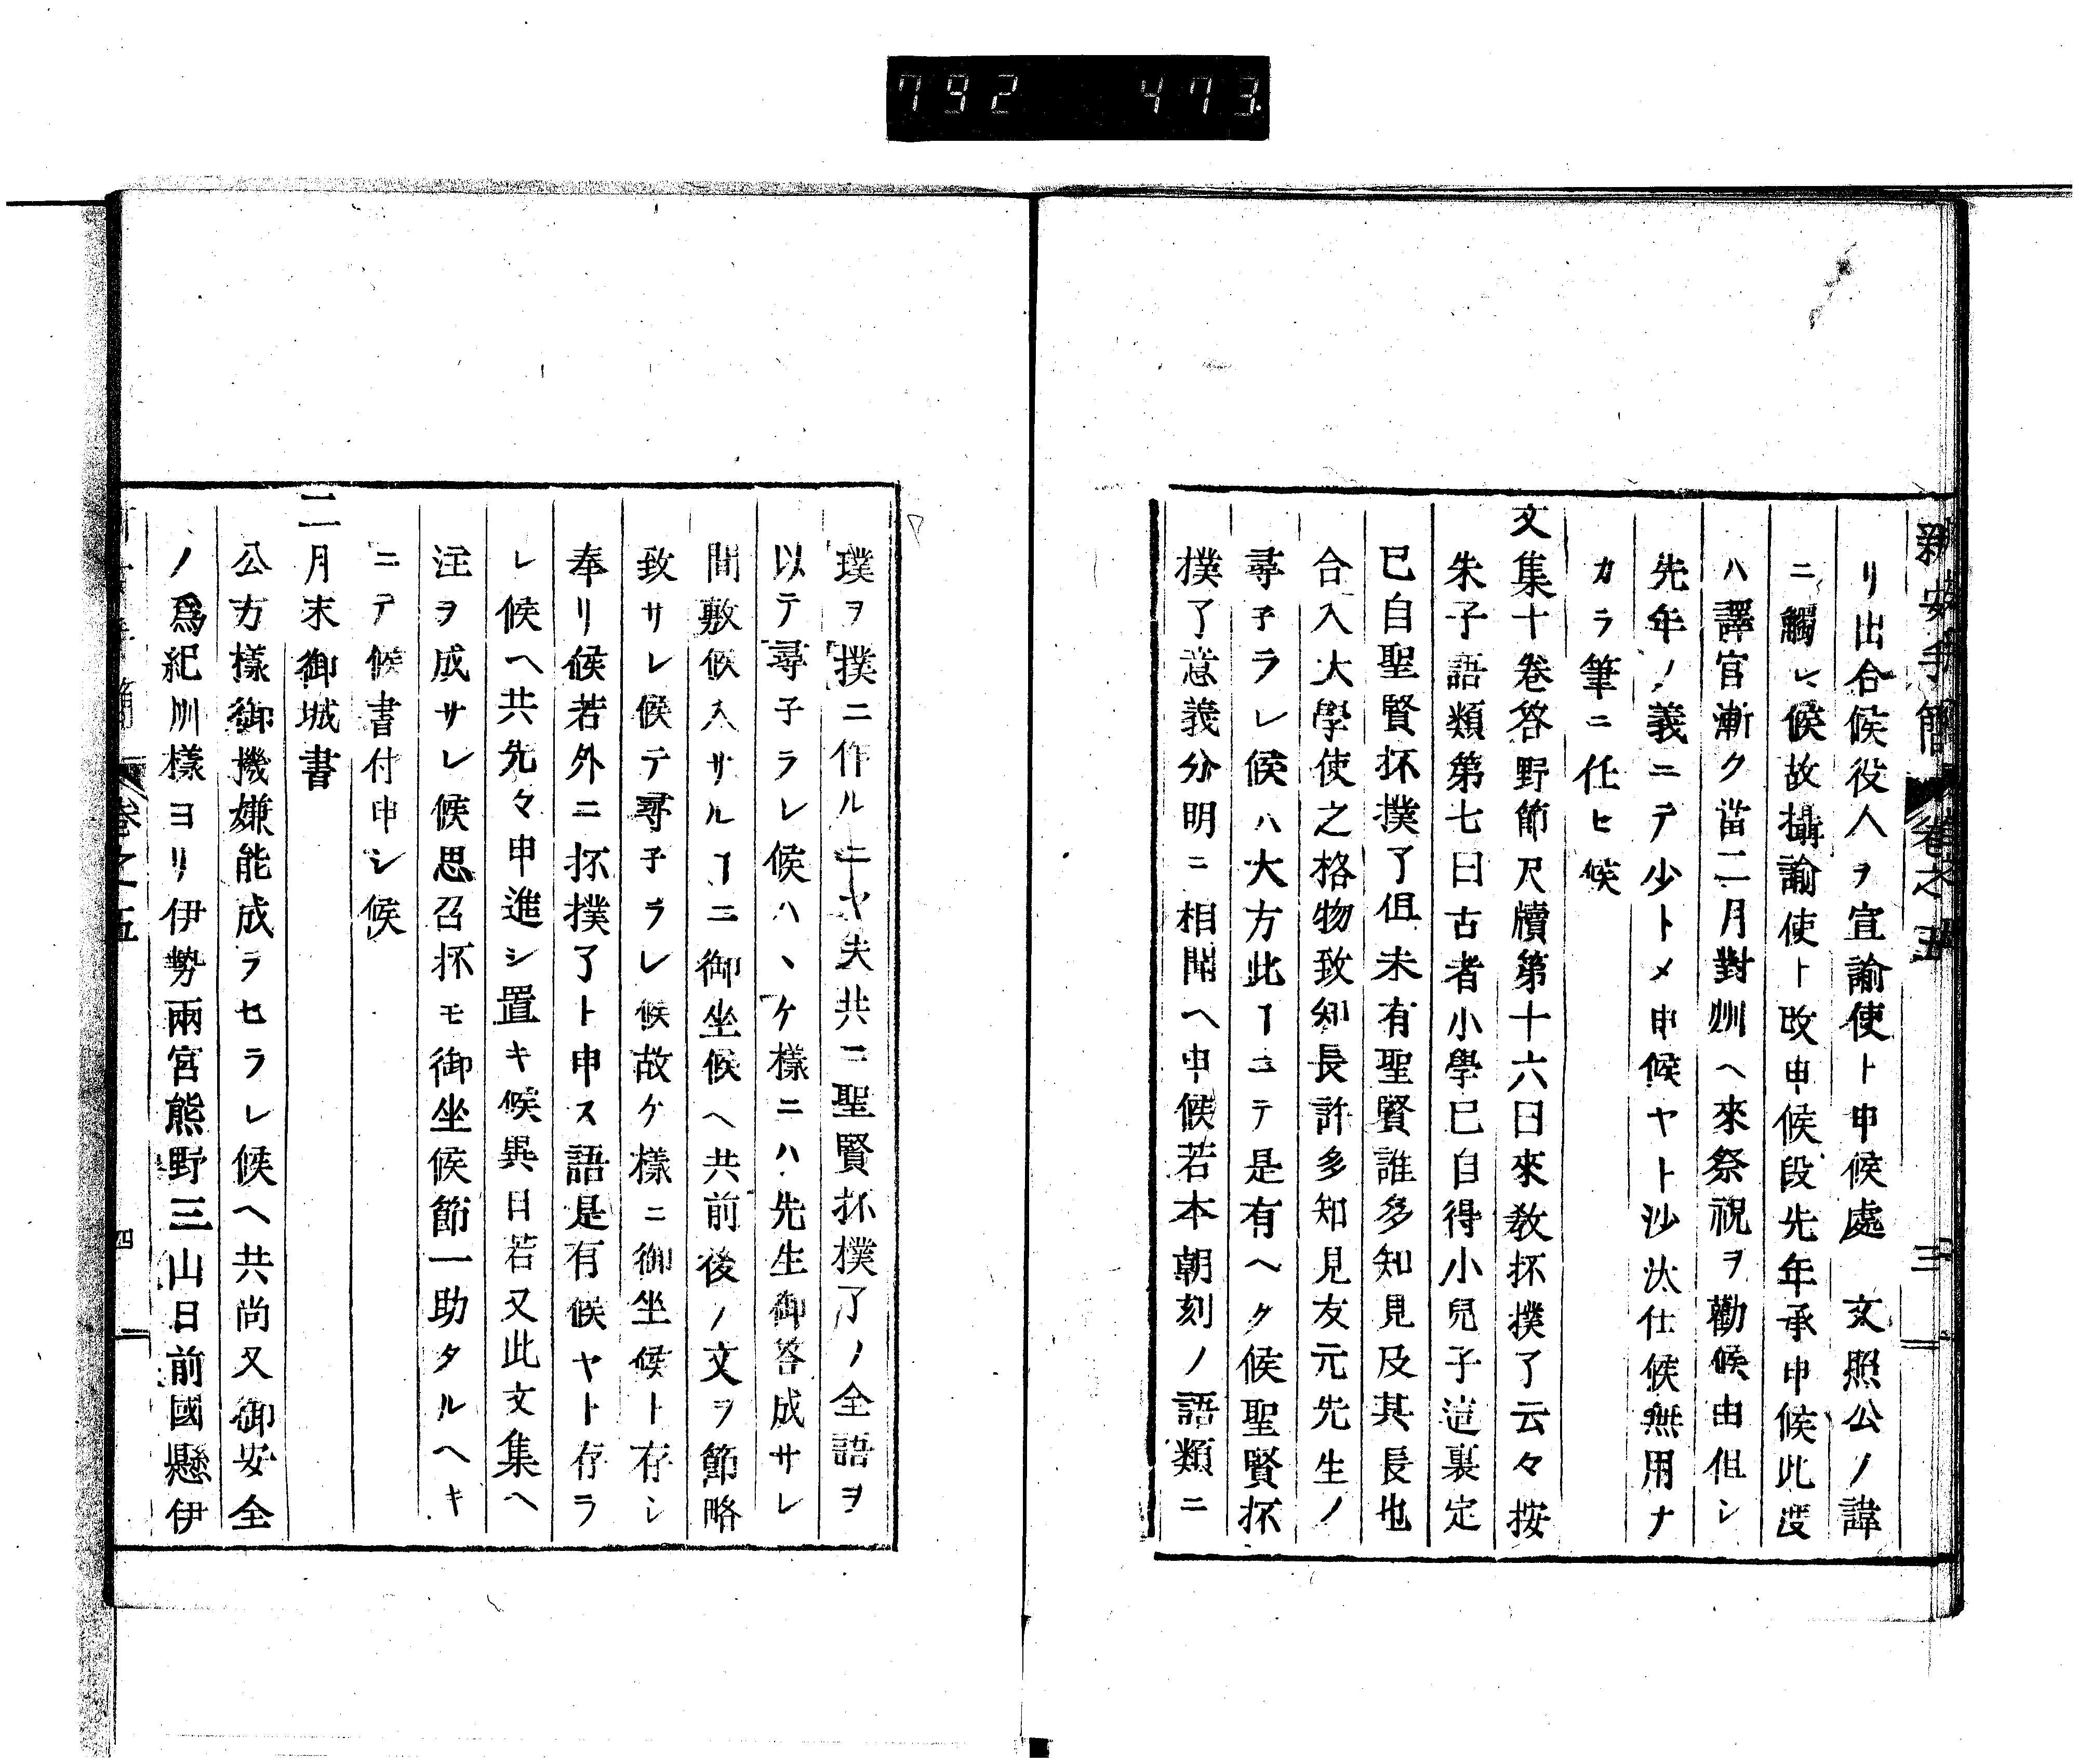 792 473
新安手簡 卷之五 三
リ出合候役人ヲ宣諭使ト申候處 文照公ノ諱
ニ觸レ候故攝諭使ト改申候段先年承申候此度
ハ譯官漸ク當二月對州ヘ來祭祝ヲ勸候由但シ
先年ノ義ニテ少トメ申候ヤト沙汰仕候無用ナ
カラ筆ニ任ヒ候
文集十卷答野節尺牘第十六曰來教抔撲了云々按
朱子語類第七曰古者小學已自得小兒子這裏定
已自聖賢抔撲了但未有聖賢許多知見及其長也
合入大學使之格物致知長許多知見友元先生ノ
尋子ラレ候ハ大方此ヿニテ是有ヘク候聖賢抔
撲了意義分明ニ相聞ヘ申候若本朝刻ノ語類ニ
璞ヲ撲ニ作ルニヤ夫共ニ聖賢抔撲了ノ全語ヲ
以テ尋子ラレ候ハヽケ樣ニハ先生御答成サレ
間敷候入サルヿニ御坐候ヘ共前後ノ文ヲ節略
致サレ候テ尋子ラレ候故ケ樣ニ御坐候ト存シ
奉リ候若外ニ抔撲了ト申ス語是有候ヤト存ラ
レ候ヘ共先々申進シ置キ候異日若又此文集ヘ
注ヲ成サレ候思召抔モ御坐候節一助タルヘキ
ニテ候書付申シ候
二月末御城書
公方樣御機嫌能成ラセラレ候ヘ共尚又御安全
ノ爲紀州樣ヨリ伊勢兩宮熊野三山日前國懸伊
卷之五 四